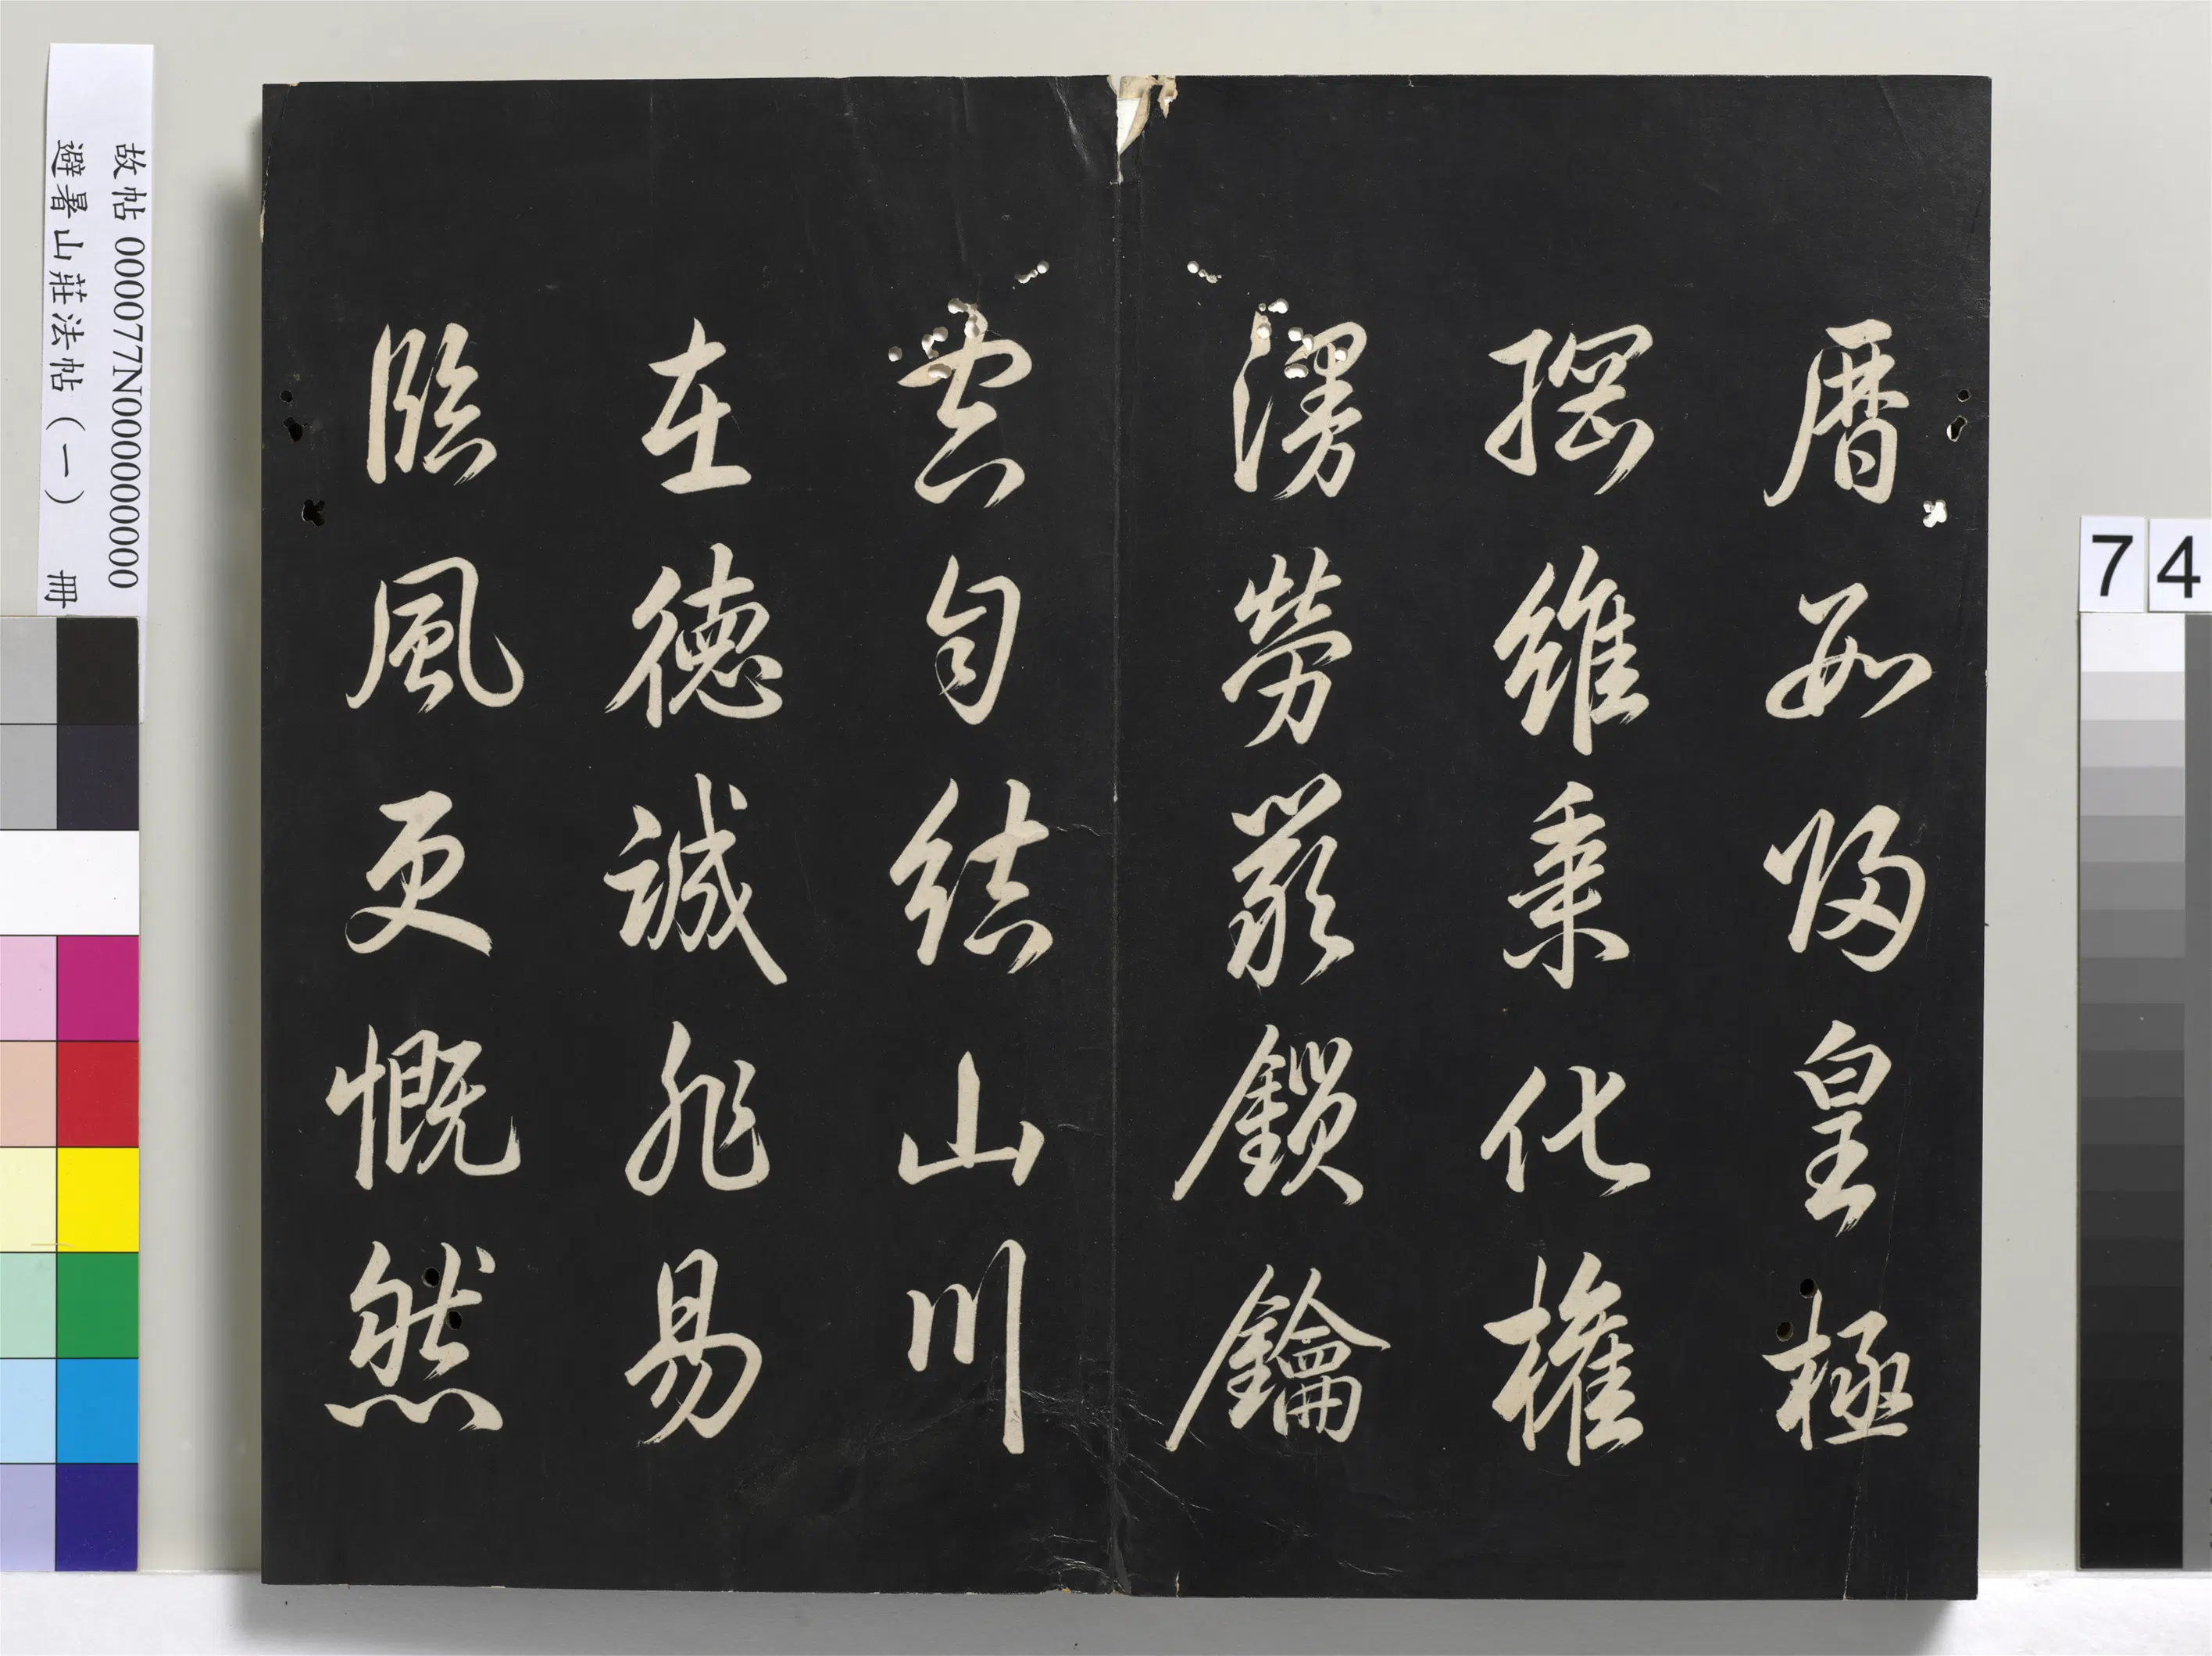 暦數歸皇極
綱維秉化權
漫勞嚴鎖鑰
空自結山川
在德誠非易
臨風更慨然
故帖 000077N000000000
避暑山莊法帖（一） 冊
74